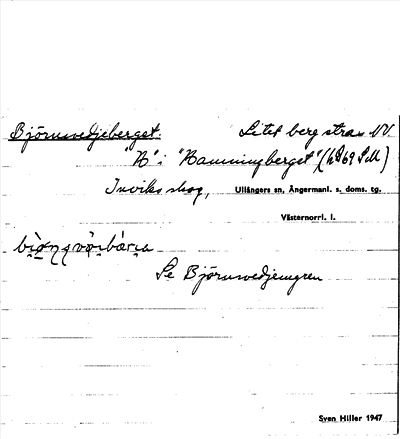 Björnsvedjeberget. Litet berg strax NV
"B" i "Banningberget" (hd 69 SM)
Inviks skog, Ullångers sn, Ångermanl. s. doms. tg.
Västernorrl. l.
Se Björnsvedjemyren
Sven Hiller 1947